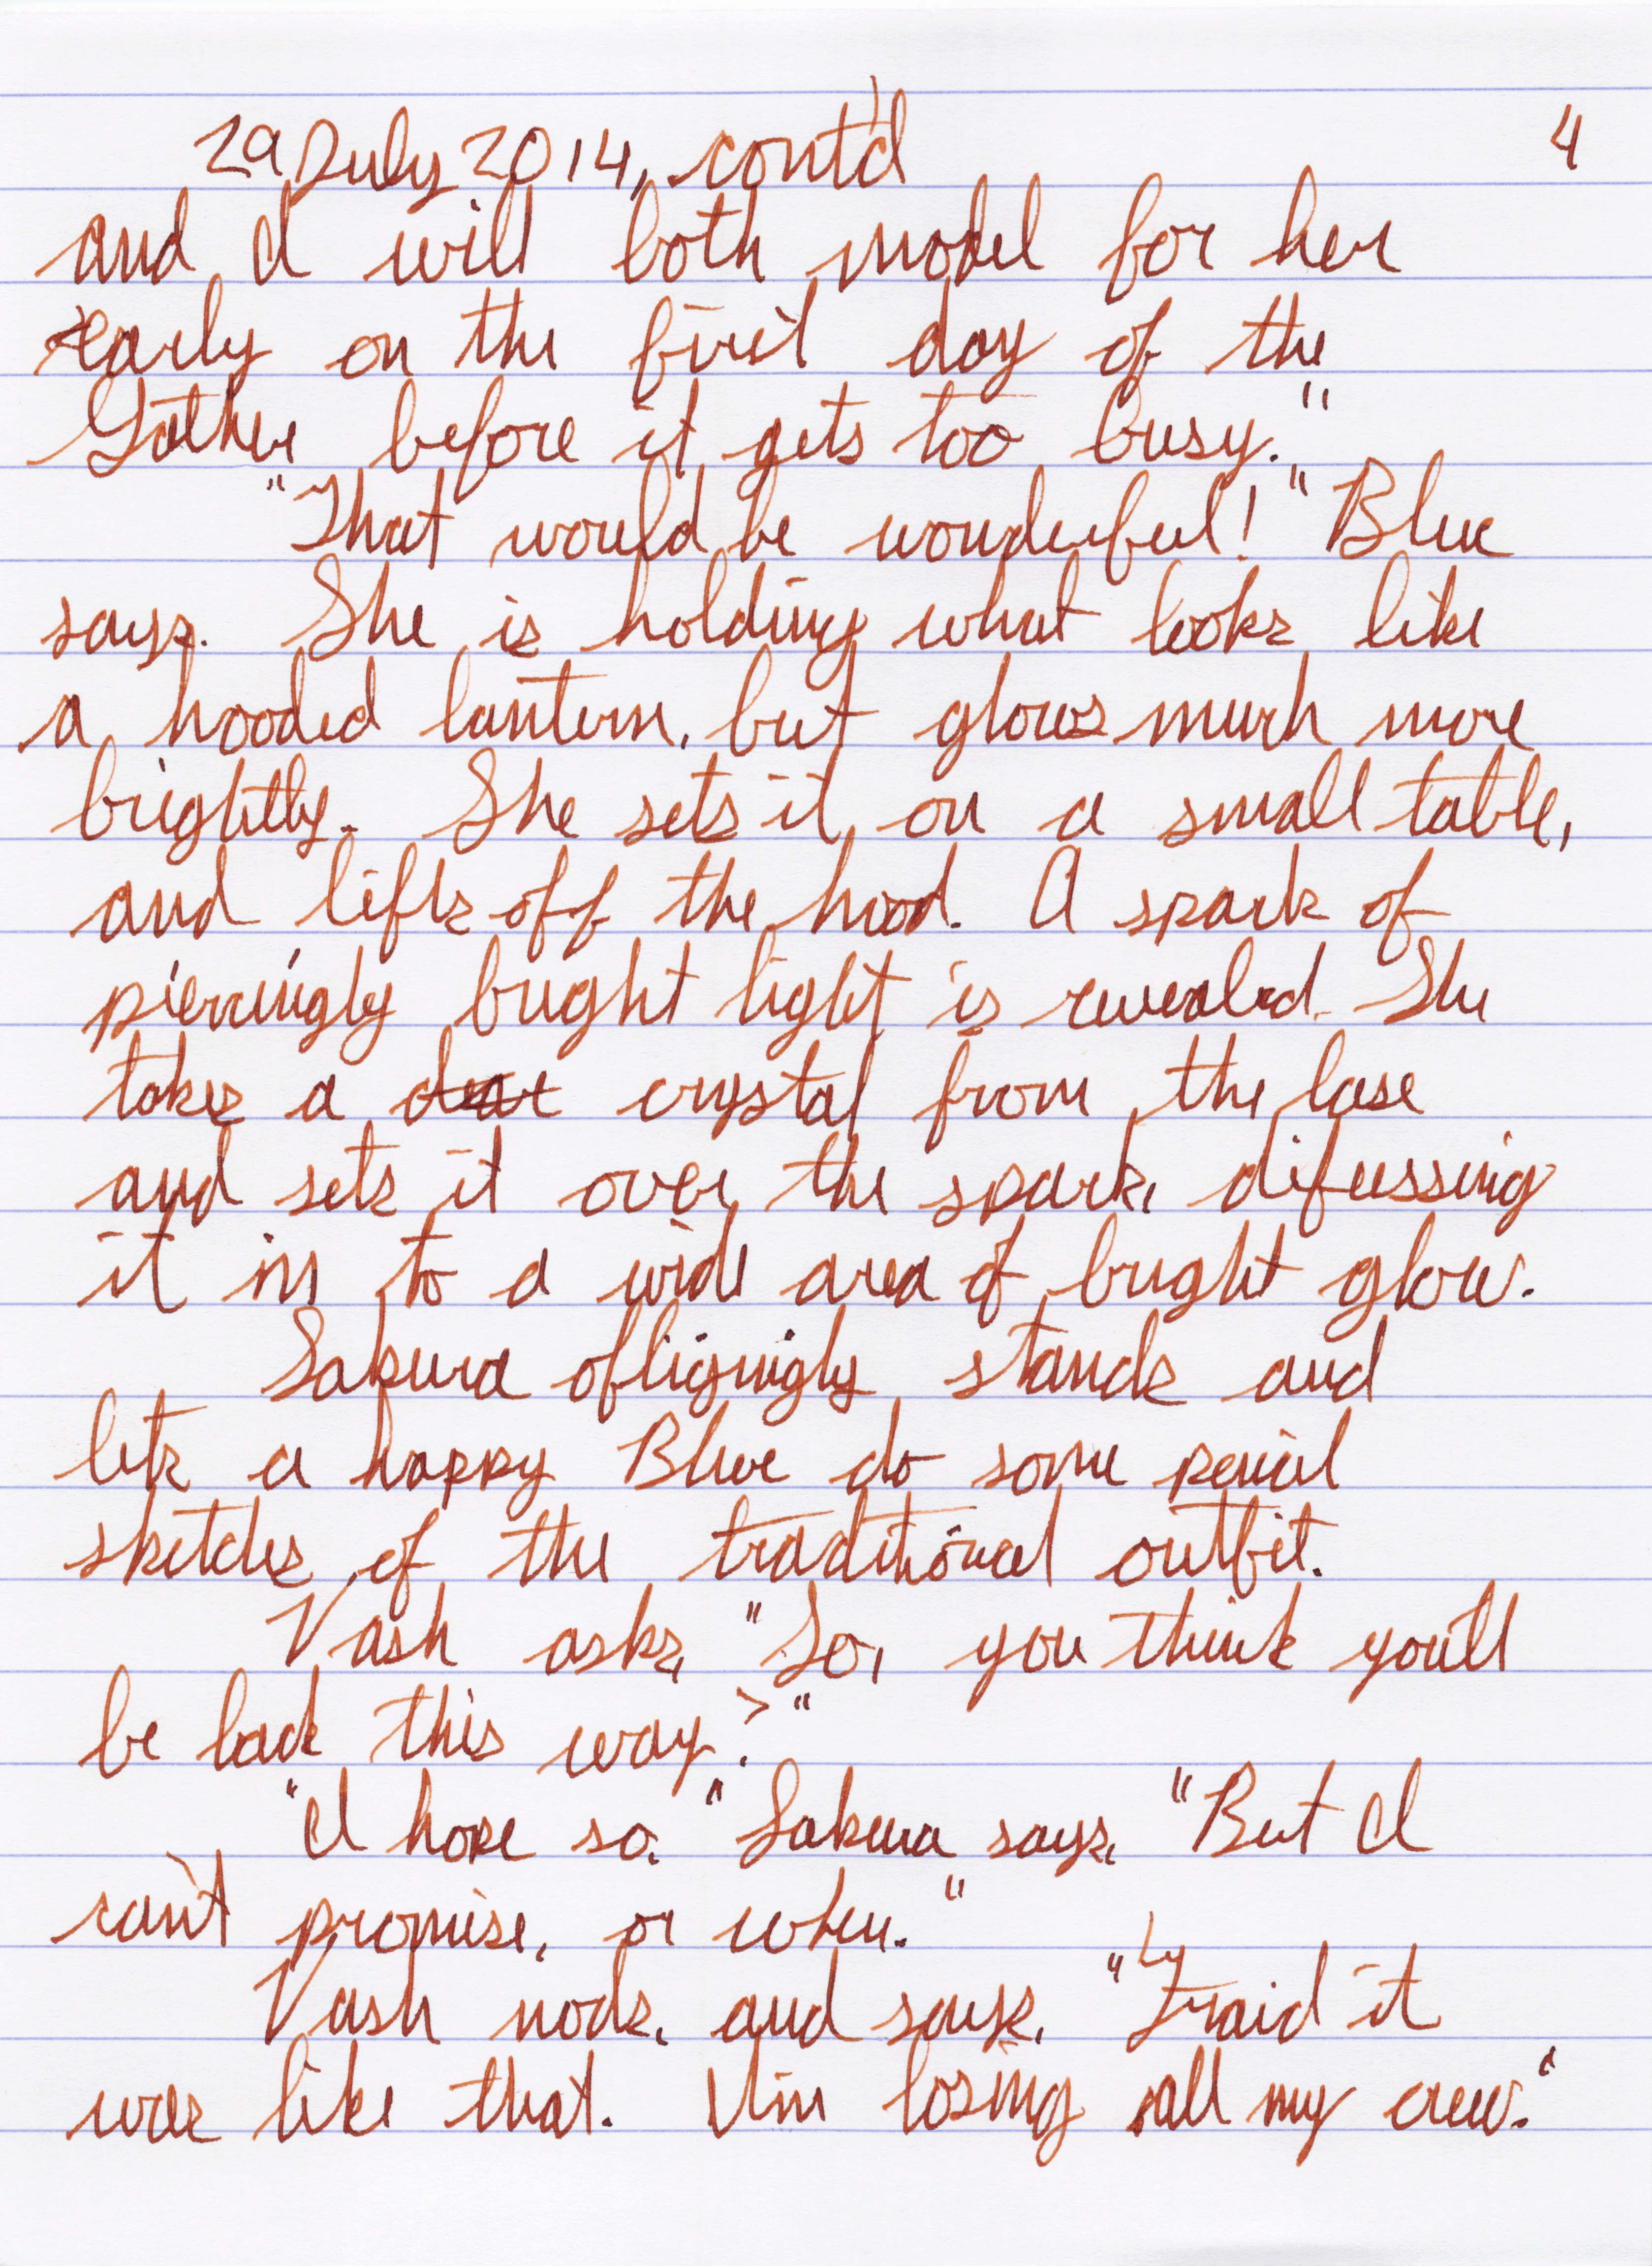 29 July 2014, cont'd 4
and I will both model for her
early on the first day of the
Gather before it gets too busy."
"That would be wonderful!" Blue
says. She is holding what looks like
a hooded lantern, but glows much more
brightly. She sets it on a small table,
and lifts off the hood. A spark of
piercingly bright light is revealed. She
takes a clear crystal from the base
and sets it over the spark, difussing
it in to a wide area of bright glow.
Sakura obligingly stands and
lets a happy Blue do some pencil
sketches of the traditional outfit.
Vash asks, "So, you think you'll
be back this way?"
"I hope so." Sakura says, "But I
can't promise, or when."
Vash nods, and says, "'Fraid it
was like that. I'm losing all my crew."